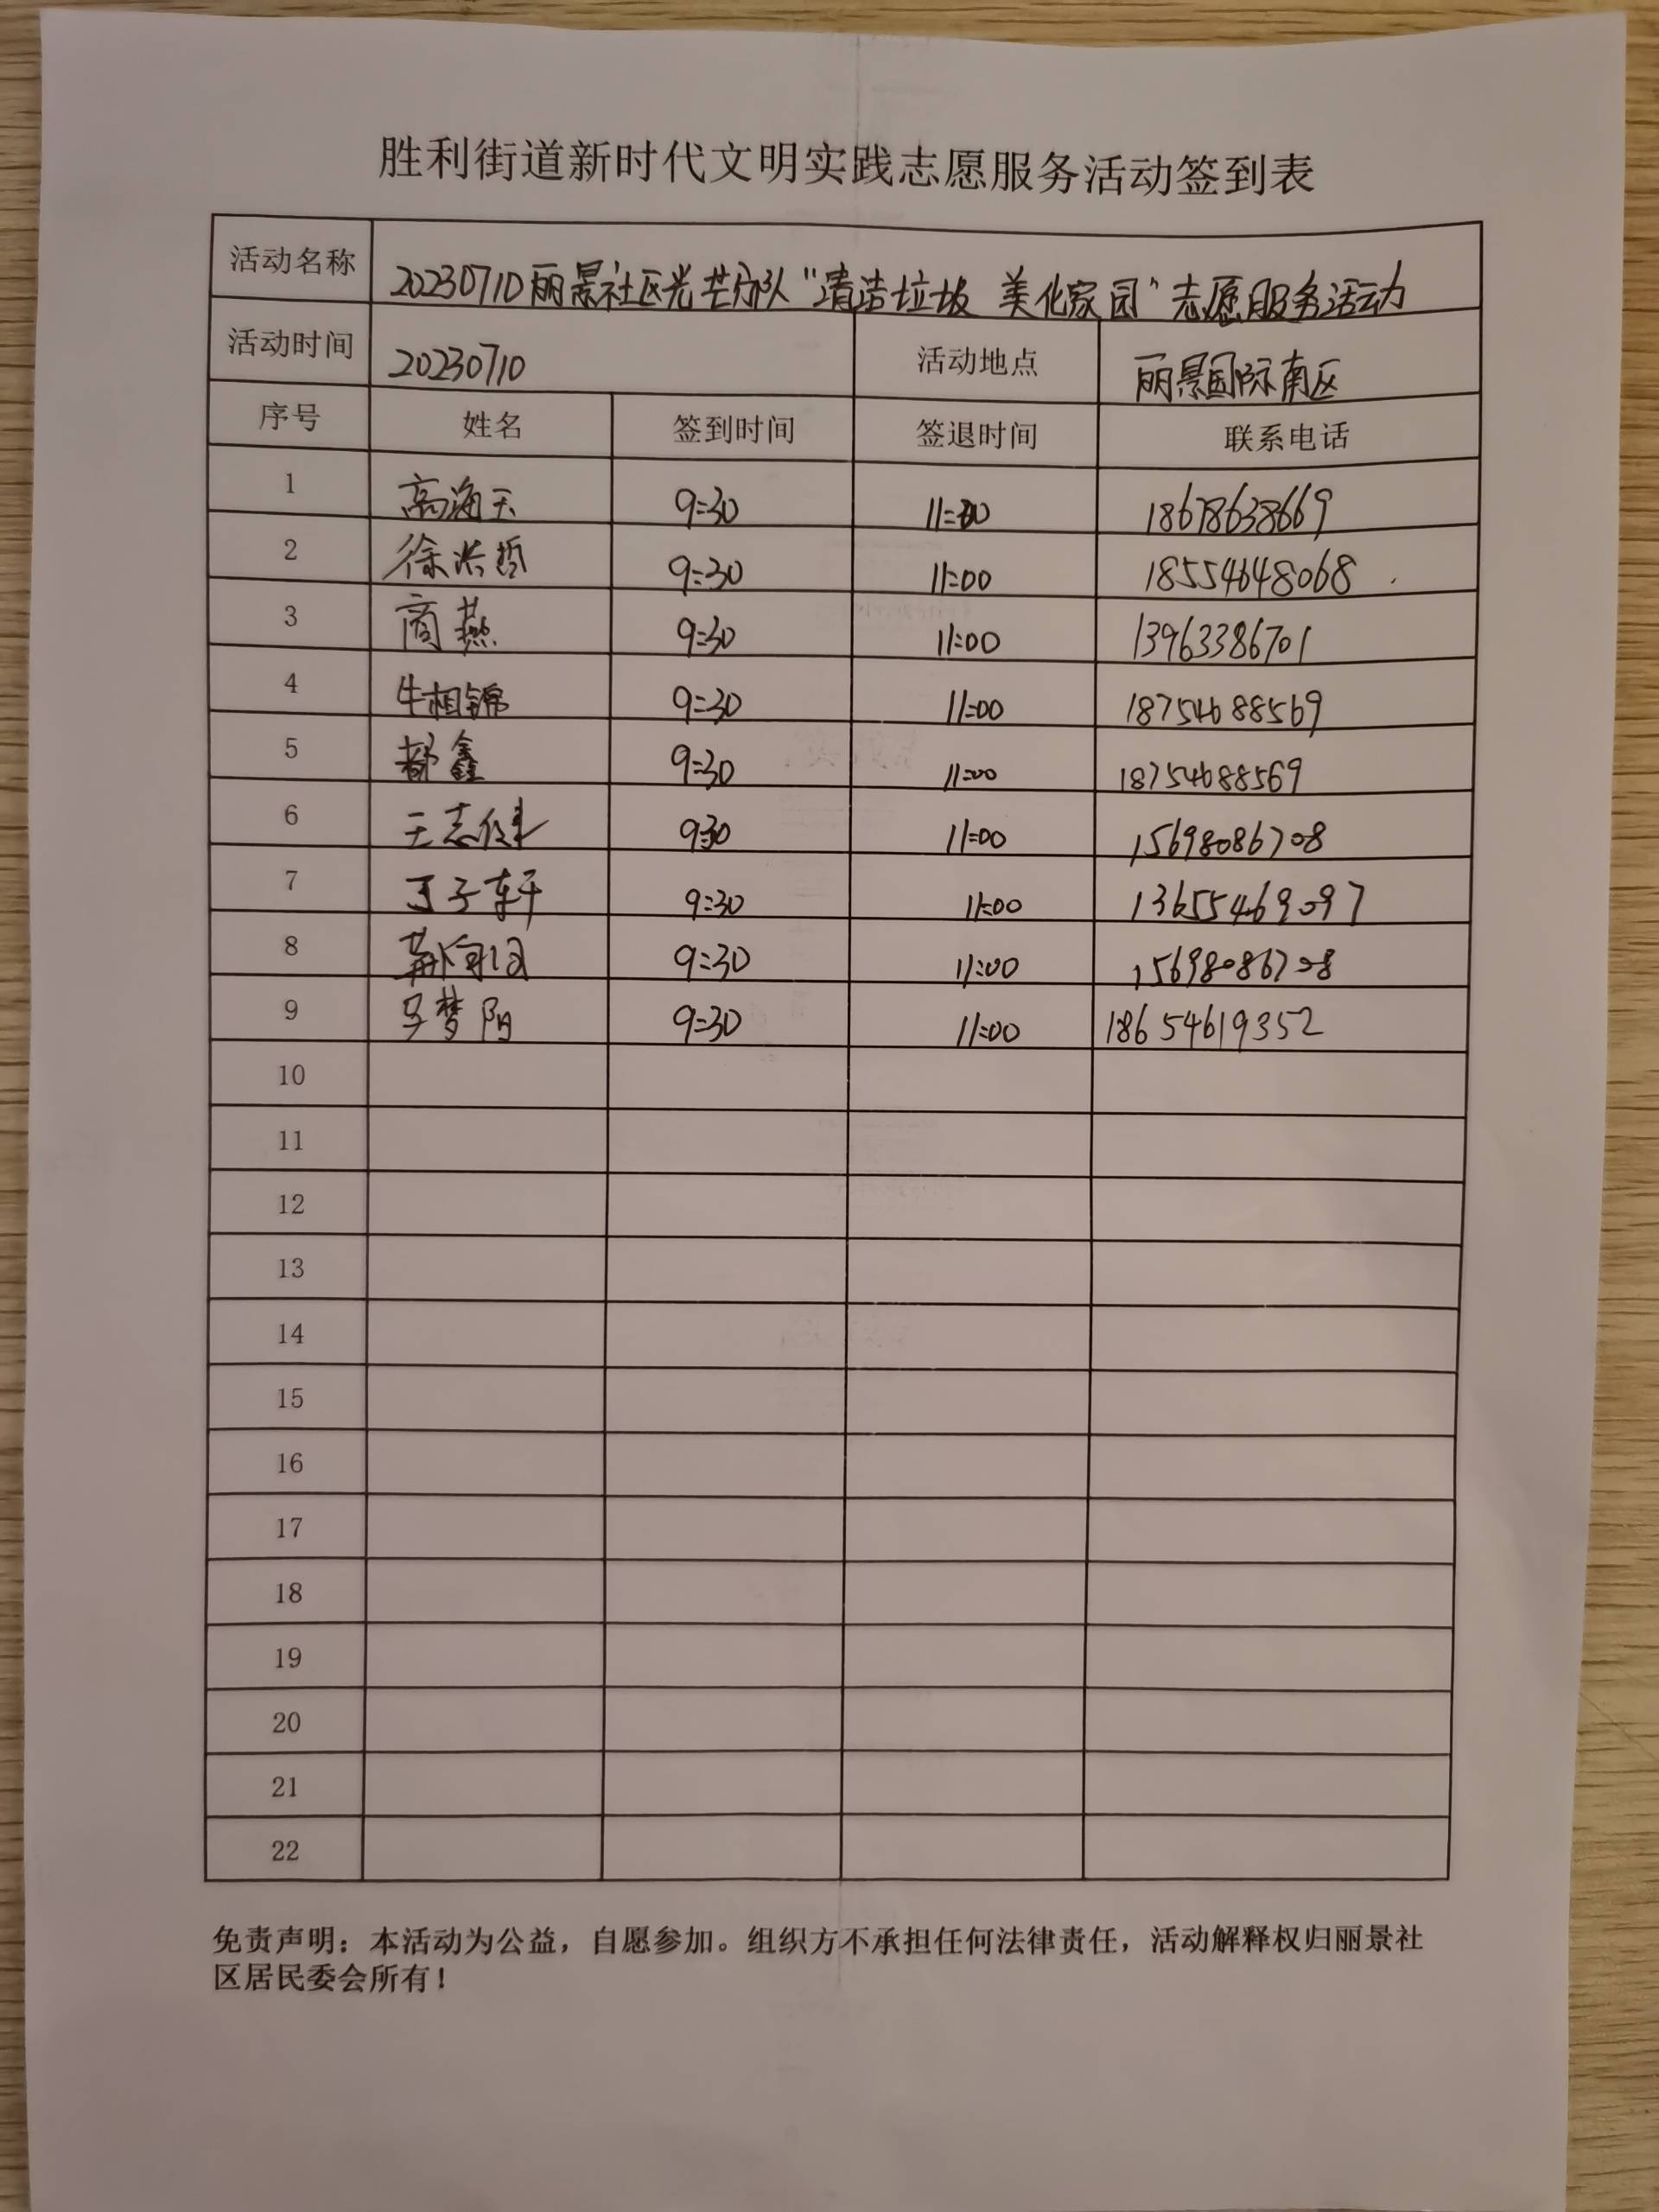 胜利街道新时代文明实践志愿服务活动签到表
活动名称 20230710丽景社区光芒分队“清洁垃圾 美化家园”志愿服务活动
活动时间 20230710 活动地点 丽景国际南区
序号 姓名 签到时间 签退时间 联系电话
1 高海玉 9:30 11:00 18678638669
2 徐洪哲 9:30 11:00 18554648068
3 商燕 9:30 11:00 13963386701
4 牛相锦 9:30 11:00 18754688569
5 郝鑫 9:30 11:00 18754688569
6 王志健 9:30 11:00 15698086708
7 丁子轩 9:30 11:00 13655469097
8 9:30 11:00 15698086708
9 梦阳 9:30 11:00 18654619352
10
11
12
13
14
15
16
17
18
19
20
21
22
免责声明：本活动为公益，自愿参加。组织方不承担任何法律责任，活动解释权归丽景社
区居民委会所有！